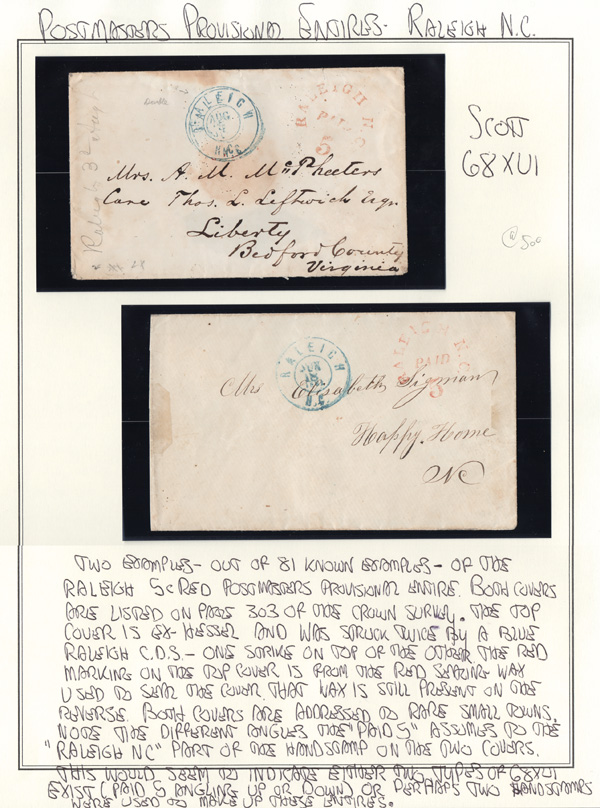 POSTMASTERS PROVISIONAL ENTIRES - RALEIGH N.C.
RALEIGH
AUG
N.C.
Double
RALEIGH N.C.
PAID
5
SCOTT
68XU1
Mrs. A. M. McPheeters
Care Thos. L. Leftwich Esqr.
Liberty
Bedford County
Virginia
@500
RALEIGH
JUN
18
N.C.
RALEIGH N.C.
PAID
5
Mrs Elisabeth Sigman
Happy Home
NC
TWO EXAMPLES - OUT OF 81 KNOWN EXAMPLES - OF THE
RALEIGH 5¢ RED POSTMASTERS PROVISIONAL ENTIRE. BOTH COVERS
ARE LISTED ON PAGE 303 OF THE CROWN SURVEY. THE TOP
COVER IS EX-HESSEL AND WAS STRUCK TWICE BY A BLUE
RALEIGH C.D.S. - ONE STRIKE ON TOP OF THE OTHER. THE RED
MARKING ON THE TOP COVER IS FROM THE RED SEALING WAX
USED TO SEAL THE COVER. THAT WAX IS STILL PRESENT ON THE
REVERSE. BOTH COVERS ARE ADDRESSED TO RARE SMALL TOWNS.
NOTE THE DIFFERENT ANGLES THE "PAID 5" ASSUMES TO THE
"RALEIGH NC" PART OF THE HANDSTAMP ON THE TWO COVERS.
THIS WOULD SEEM TO INDICATE EITHER TWO TYPES OF 68XU1
EXIST (PAID 5 ANGLING UP OR DOWN) OR PERHAPS TWO HANDSTAMPS
WERE USED TO MAKE UP THESE ENTIRES.